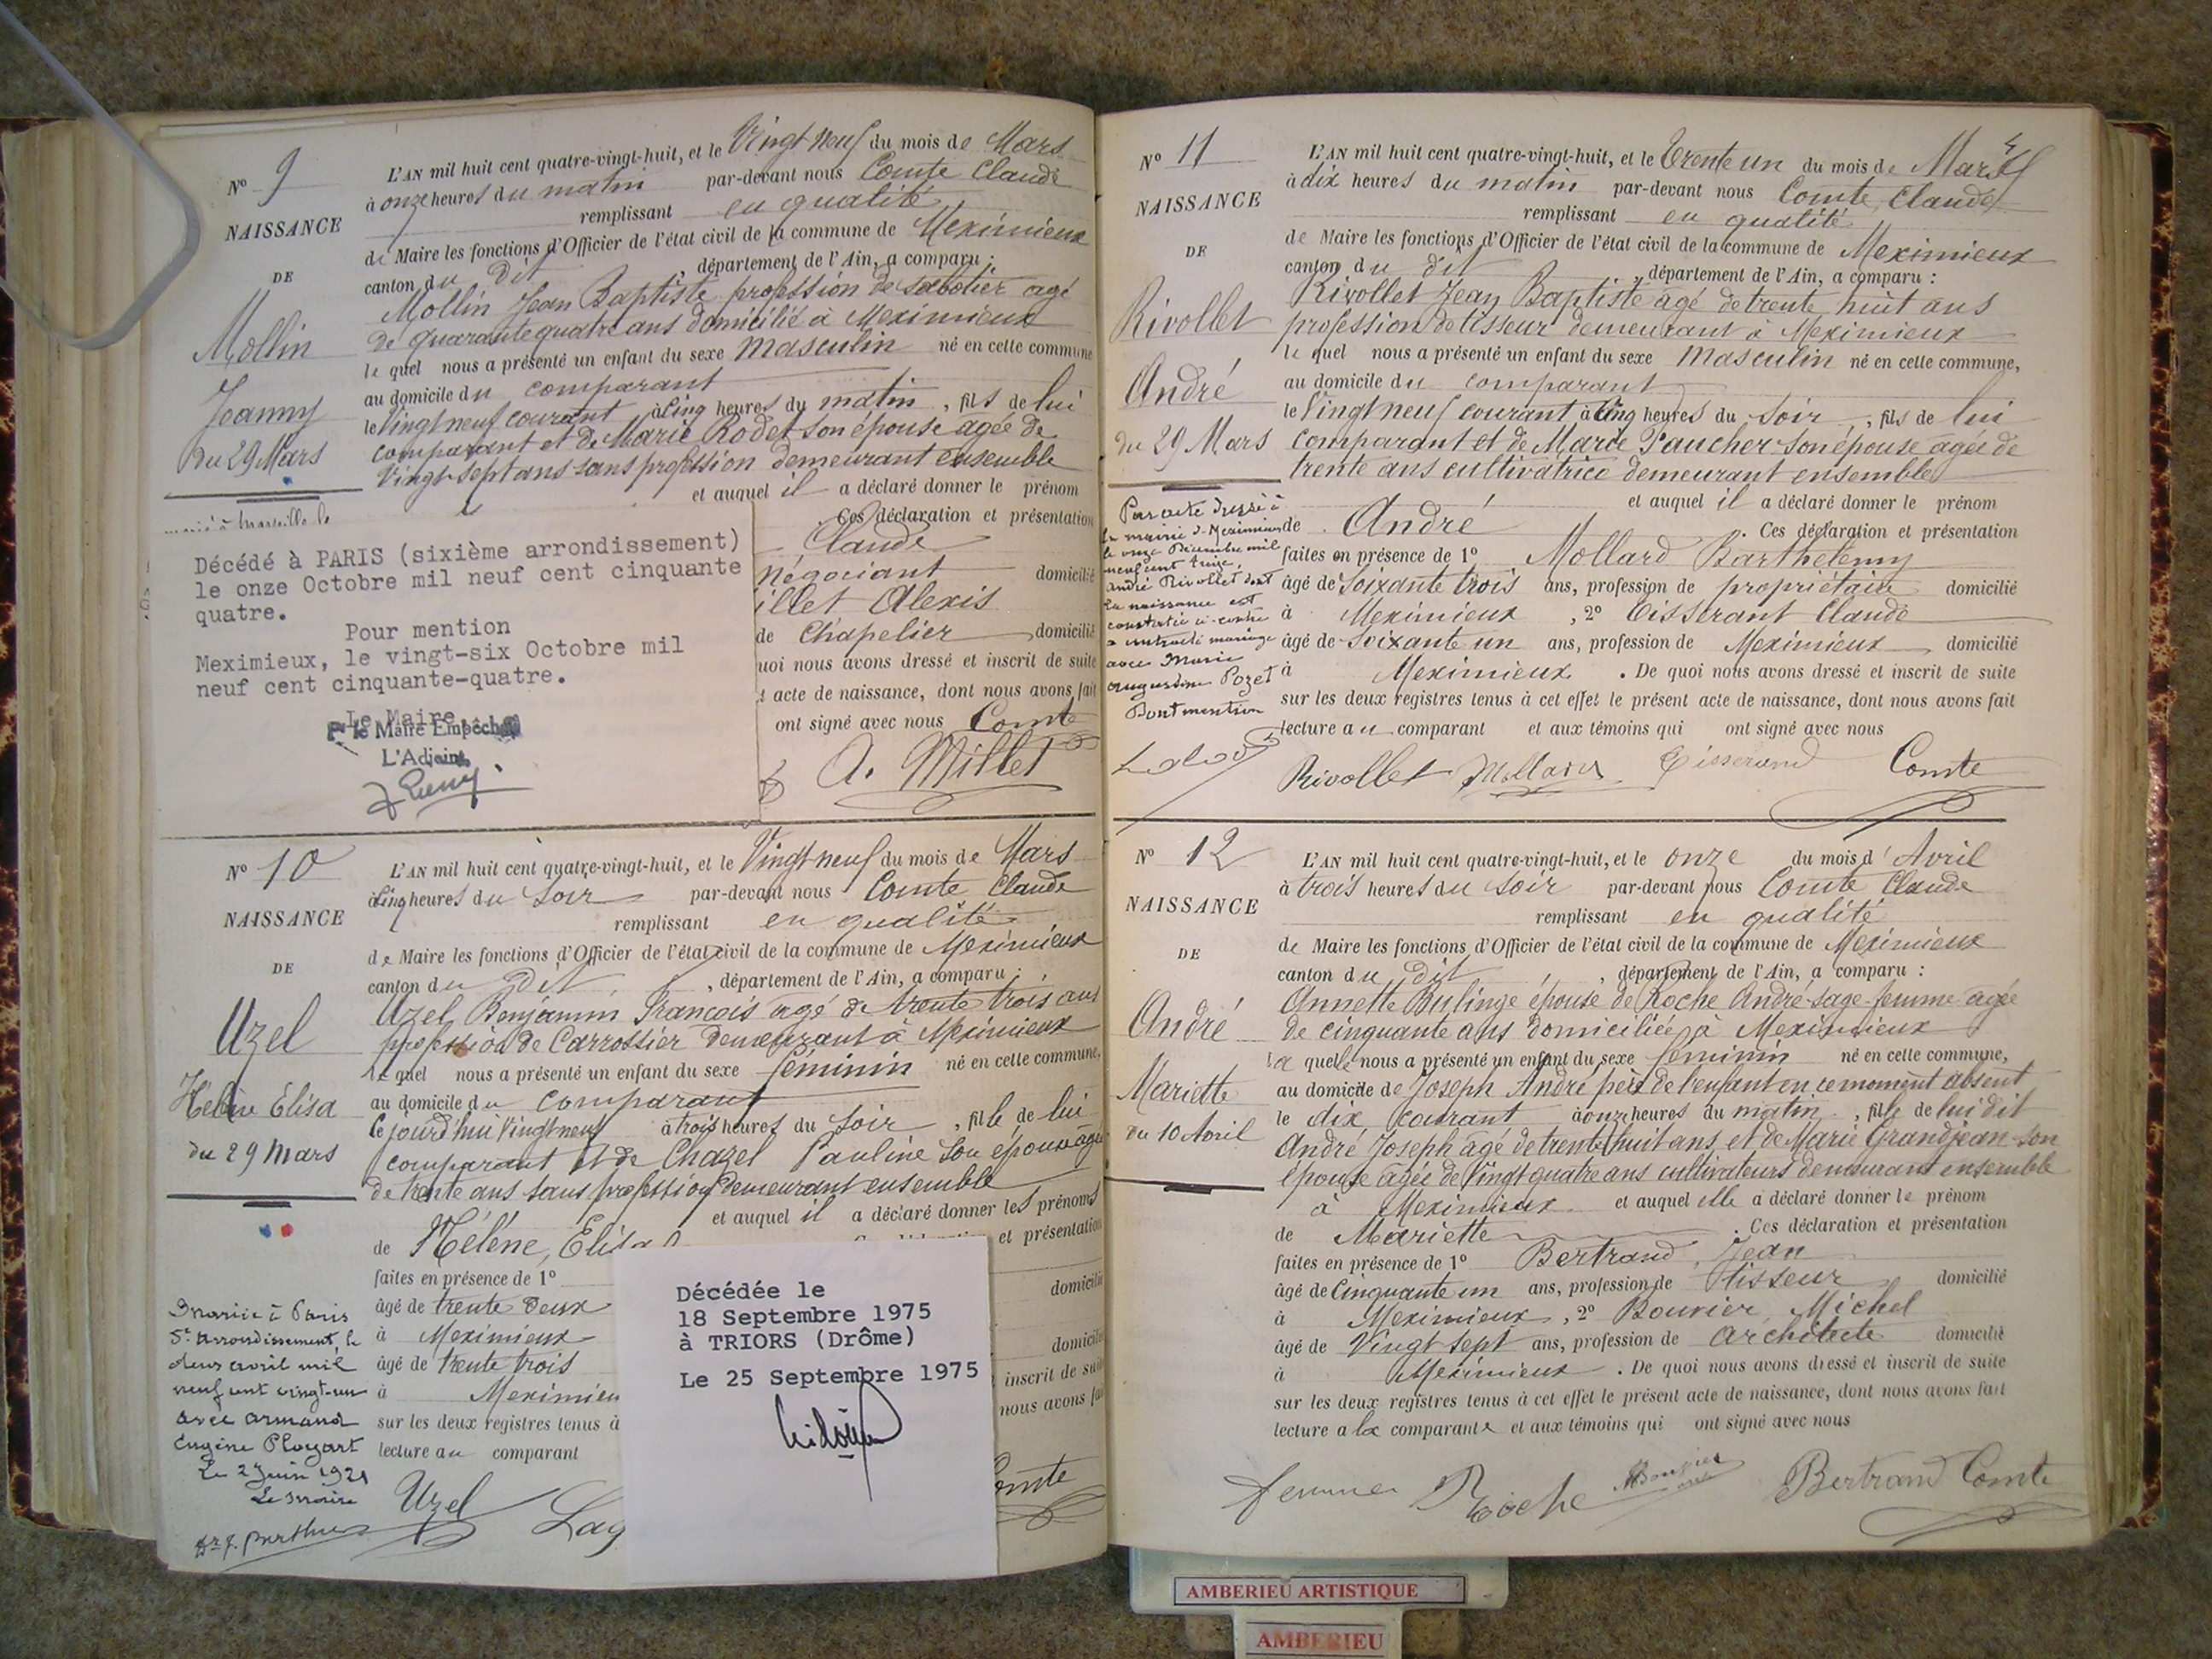 N° 9
NAISSANCE
DE
Mollin
Jeanny
Du 29 Mars
L'AN mil huit cent quatre-vingt-huit, et le Vingt neuf du mois de Mars
à onze heures du matin par-devant nous Comte Claude
remplissant en qualité
de Maire les fonctions d'Officier de l'état civil de la commune de Meximieux
canton du dit, département de l'Ain, a comparu :
Mollin Jean Baptiste profession de sabotier agé
de quarante quatre ans domicilié à Meximieux
le quel nous a présenté un enfant du sexe masculin né en cette commune
au domicile du comparant
le Vingt neuf courant à Cinq heures du matin, fils de lui
comparant et de Marie Rodet son épouse agée de
Vingt-sept ans sans profession demeurant ensemble
et auquel il a déclaré donner le prénom
marié à Marseille le
Décédé à PARIS (sixième arrondissement)
le onze Octobre mil neuf cent cinquante
quatre.
Pour mention
Meximieux, le vingt-six Octobre mil
neuf cent cinquante-quatre.
Le Maire,
Pr le Maire Empêché
L'Adjoint,
. Ces déclaration et présentation
Claude
négociant domicilié
illet Alexis
de Chapelier domicilié
uoi nous avons dressé et inscrit de suite
t acte de naissance, dont nous avons fait
ont signé avec nous Comte
A. Millet
N° 10
NAISSANCE
DE
Uzel
Hélène Élisa
du 29 Mars
L'AN mil huit cent quatre-vingt-huit, et le Vingt neuf du mois de Mars
à Cinq heures du Soir par-devant nous Comte Claude
remplissant en qualité
de Maire les fonctions d'Officier de l'état civil de la commune de Meximieux
canton du dit, département de l'Ain, a comparu :
Uzel Benjamin François agé de trente trois ans
profession de Carrossier demeurant à Meximieux
le quel nous a présenté un enfant du sexe féminin né en cette commune,
au domicile du comparant
le jourd'hui Vingt neuf à trois heures du Soir, fille de lui
comparant et de Chazel Pauline son épouse agée
de trente ans sans profession demeurant ensemble
et auquel il a déclaré donner les prénoms
de Hélène, Élisa et présentation
faites en présence de 1°
âgé de trente deux domicilié
à Meximieux
âgé de trente trois domicilié
à Meximieu inscrit de suite
sur les deux registres tenus à nous avons fai
lecture au comparant
Uzel Lag omte
Mariée à Paris
5e Arrondissement, le
deux avril mil
neuf cent vingt-un
avec Armand
Eugène Ployart
Le 2 Juin 1921
Le Maire
Décédée le
18 Septembre 1975
à TRIORS (Drôme)
Le 25 Septembre 1975
N° 11
NAISSANCE
DE
Rivollet
André
du 29 Mars
L'AN mil huit cent quatre-vingt-huit, et le trente un du mois de Mars
à dix heures du matin par-devant nous Comte Claude
remplissant en qualité
de Maire les fonctions d'Officier de l'état civil de la commune de Meximieux
canton du dit, département de l'Ain, a comparu :
Rivollet Jean Baptiste agé de trente huit ans
profession de tisseur demeurant à Meximieux
le quel nous a présenté un enfant du sexe masculin né en cette commune,
au domicile du comparant
le Vingt neuf courant à Cinq heures du soir, fils de lui
comparant et de Marie Paucher son épouse agée de
trente ans cultivatrice demeurant ensemble
et auquel il a déclaré donner le prénom
de André . Ces déclaration et présentation
faites en présence de 1° Mollard Barthelemy
âgé de Soixante trois ans, profession de propriétaire domicilié
à Meximieux, 2° Tisserant Claude
âgé de Soixante un ans, profession de Meximieux domicilié
à Meximieux. De quoi nous avons dressé et inscrit de suite
sur les deux registres tenus à cet effet le présent acte de naissance, dont nous avons fait
lecture au comparant et aux témoins qui ont signé avec nous
Rivollet Mollard Tisserand Comte
Par acte dressé à
la mairie de Meximieux
le onze Décembre mil
neuf cent treize,
André Rivollet dont
la naissance est
constatée ci-contre
a contracté mariage
avec Marie
Augustine Pozet
Dont mention
N° 12
NAISSANCE
DE
André
Mariette
du 10 Avril
L'AN mil huit cent quatre-vingt-huit, et le onze du mois d'Avril
à trois heures du soir par-devant nous Comte Claude
remplissant en qualité
de Maire les fonctions d'Officier de l'état civil de la commune de Meximieux
canton du dit, département de l'Ain, a comparu :
Annette Bulinge épouse de Roche André sage-femme agée
de cinquante ans domiciliée à Meximieux
la quelle nous a présenté un enfant du sexe féminin né en cette commune,
au domicile de Joseph André père de l'enfant en ce moment absent
le dix courant à onze heures du matin, fille de lui dit
André Joseph agé de trente huit ans et de Marie Grandjean son
épouse agée de Vingt quatre ans cultivateurs demeurant ensemble
à Meximieux et auquel elle a déclaré donner le prénom
de Mariette . Ces déclaration et présentation
faites en présence de 1° Bertrand, Jean
âgé de Cinquante un ans, profession de tisseur domicilié
à Meximieux, 2° Bouvier Michel
âgé de Vingt sept ans, profession de architecte domicilié
à Meximieux. De quoi nous avons dressé et inscrit de suite
sur les deux registres tenus à cet effet le présent acte de naissance, dont nous avons fait
lecture a la comparante et aux témoins qui ont signé avec nous
femme Roche Bouvier Bertrand Comte
AMBERIEU ARTISTIQUE
AMBERIEU